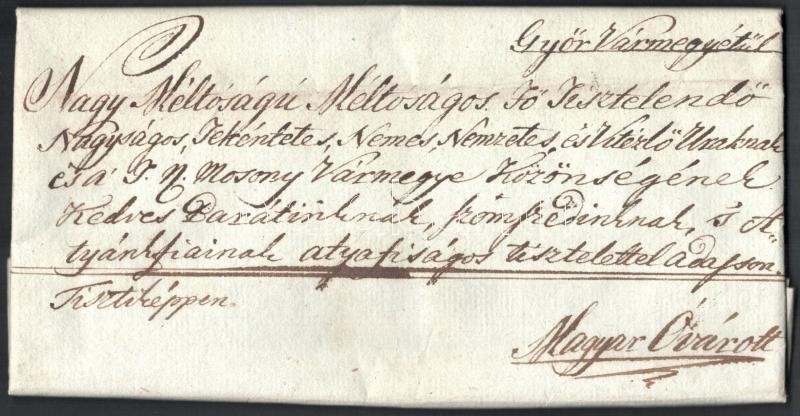 Győr Vármegyétűl
Nagy Méltóságú Méltóságos, Fő Tisztelendő
Nagyságos, Tekéntetes, Nemes, Nemzetes, és Vitézlő Uraknak
és á T. N. Mosony Vármegye Közönségének
Kedves Barátinknak, szomszédinknak, s At
tyánkfiainak atyafiságos tisztelettel adasson.
Tisztiképpen.
Magyar Óvárott